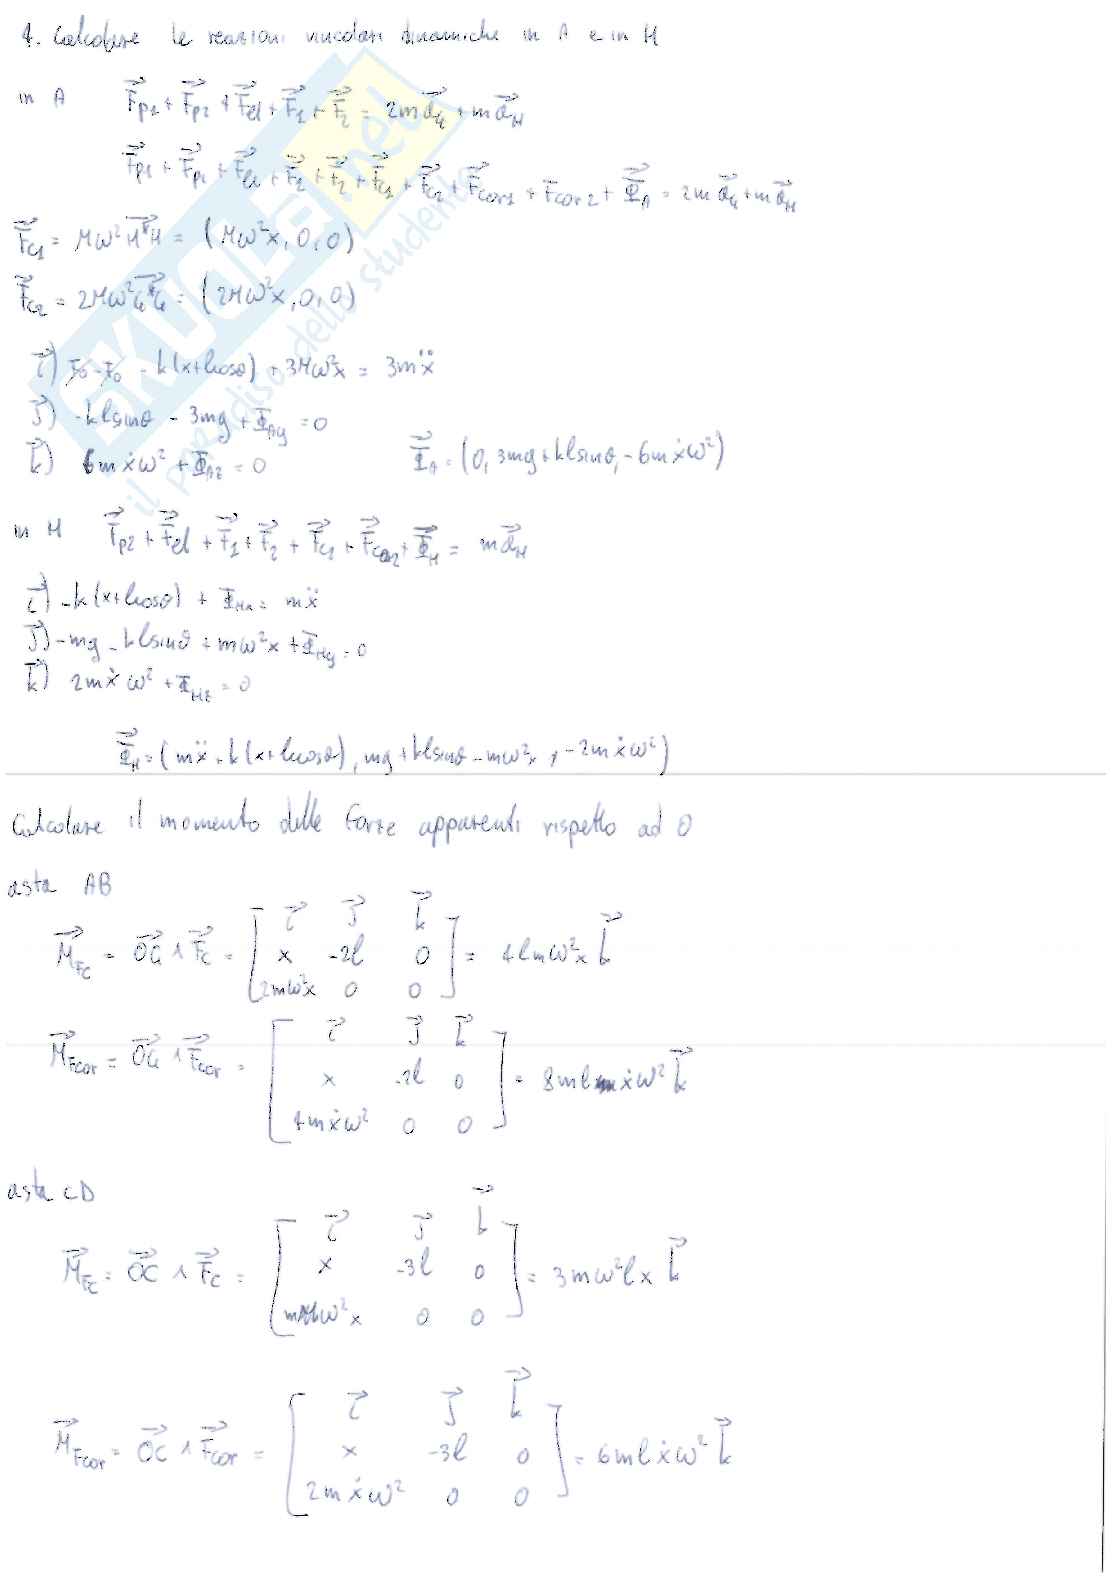 4. Calcolare le reazioni vincolari dinamiche in A e in H
in A F⃗p1 + F⃗p2 + F⃗el + F⃗1 + F⃗2 = 2m a⃗G + m a⃗H
F⃗p1 + F⃗p2 + F⃗el + F⃗1 + F⃗2 + F⃗c1 + F⃗c2 + F⃗cor1 + F⃗cor2 + Φ⃗A = 2m a⃗G + m a⃗H
F⃗c1 = Mω² H*H⃗ = (Mω²x, 0, 0)
F⃗c2 = 2Mω² G*G⃗ = (2Mω²x, 0, 0)
i⃗) F0 - F0 - k(x+lcosθ) + 3Mω²x = 3mẍ
j⃗) -klsinθ - 3mg + ΦAy = 0
k⃗) 6mẋω² + ΦAz = 0 Φ⃗A = (0, 3mg + klsinθ, -6mẋω²)
in H F⃗p2 + F⃗el + F⃗1 + F⃗2 + F⃗c1 + F⃗cor2 + Φ⃗H = m a⃗H
i⃗) -k(x+lcosθ) + ΦHx = mẍ
j⃗) -mg - klsinθ + mω²x + ΦHy = 0
k⃗) 2mẋω² + ΦHz = 0
Φ⃗H = (mẍ + k(x+lcosθ), mg + klsinθ - mω²x, -2mẋω²)
Calcolare il momento delle forze apparenti rispetto ad O
asta AB
i⃗ j⃗ k⃗
M⃗Fc = OG⃗ ∧ F⃗c = [ x -2l 0 ] = 4lmω²x k⃗
2mω²x 0 0
i⃗ j⃗ k⃗
M⃗Fcor = OG⃗ ∧ F⃗cor = [ x -2l 0 ] = 8ml ẋω² k⃗
4mẋω² 0 0
asta CD
i⃗ j⃗ k⃗
M⃗Fc = OC⃗ ∧ F⃗c = [ x -3l 0 ] = 3mω²lx k⃗
mω²x 0 0
i⃗ j⃗ k⃗
M⃗Fcor = OC⃗ ∧ F⃗cor = [ x -3l 0 ] = 6mlẋω² k⃗
2mẋω² 0 0
SKUOLA.net
il paradiso dello studente